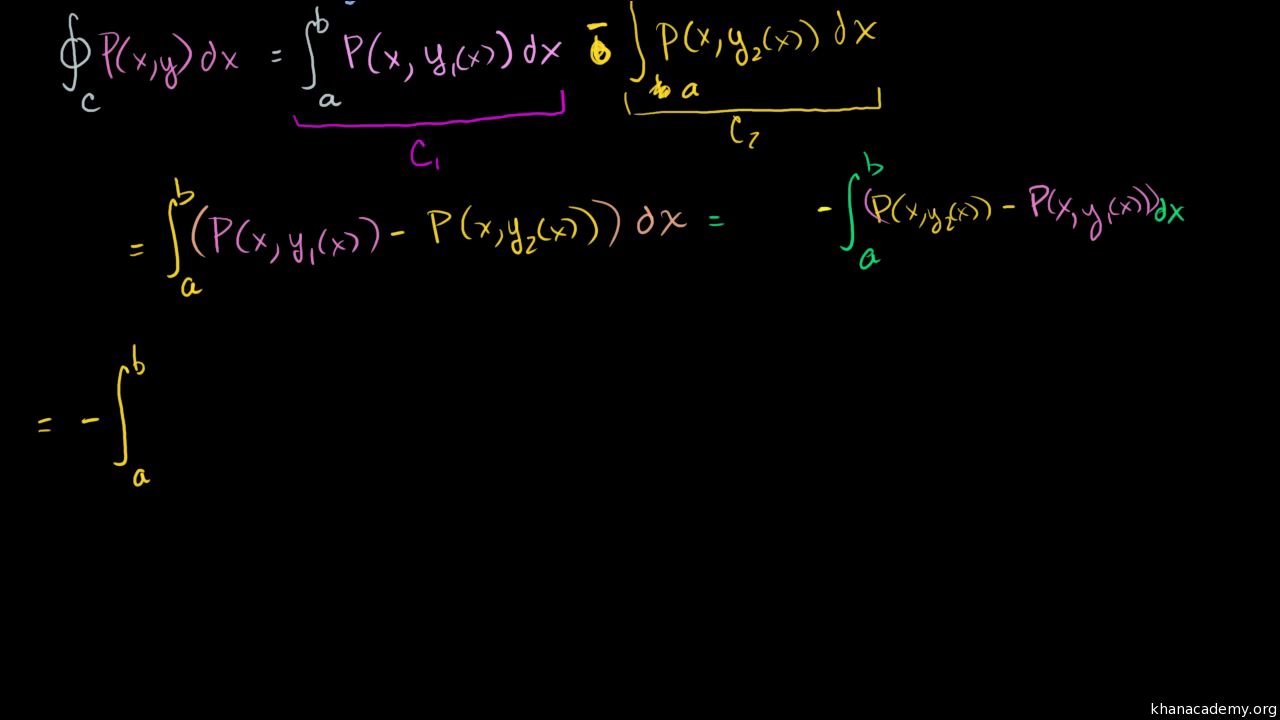 ∮_C P(x,y)dx = ∫_a^b P(x, y₁(x))dx - ∫_a P(x,y₂(x))dx
C₁ C₂
= ∫_a^b (P(x, y₁(x)) - P(x,y₂(x))) dx = - ∫_a^b (P(x,y₂(x)) - P(x,y₁(x)))dx
= - ∫_a^b
khanacademy.org